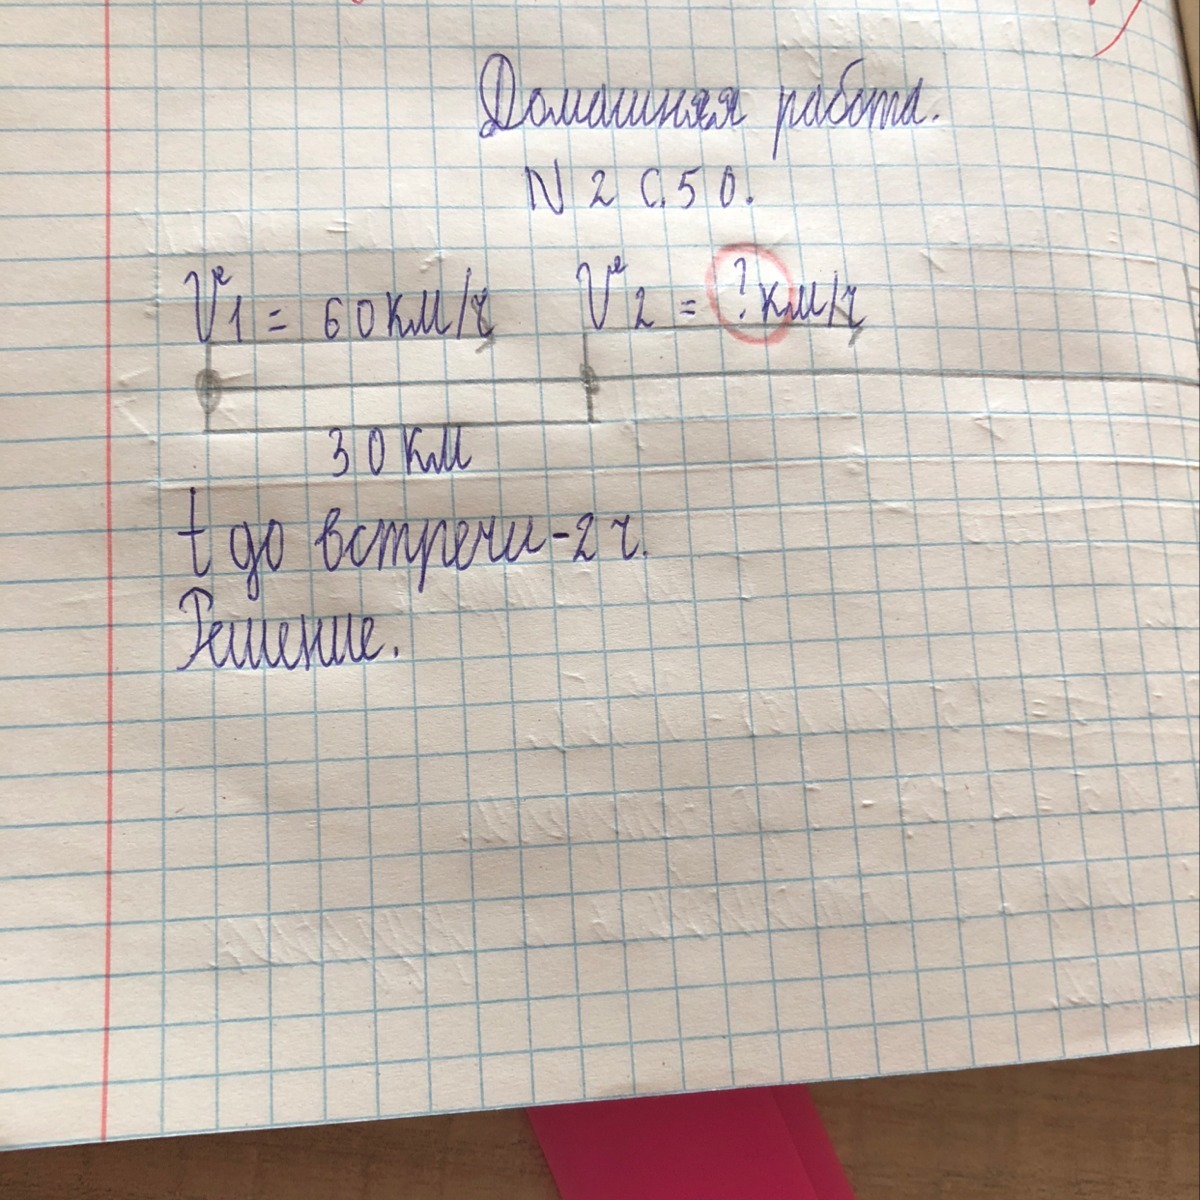 Домашняя работа.
N 2 С.50.
V1 = 60км/ч V2 = ?км/ч
30 км
t до встречи-2 ч.
Решение.